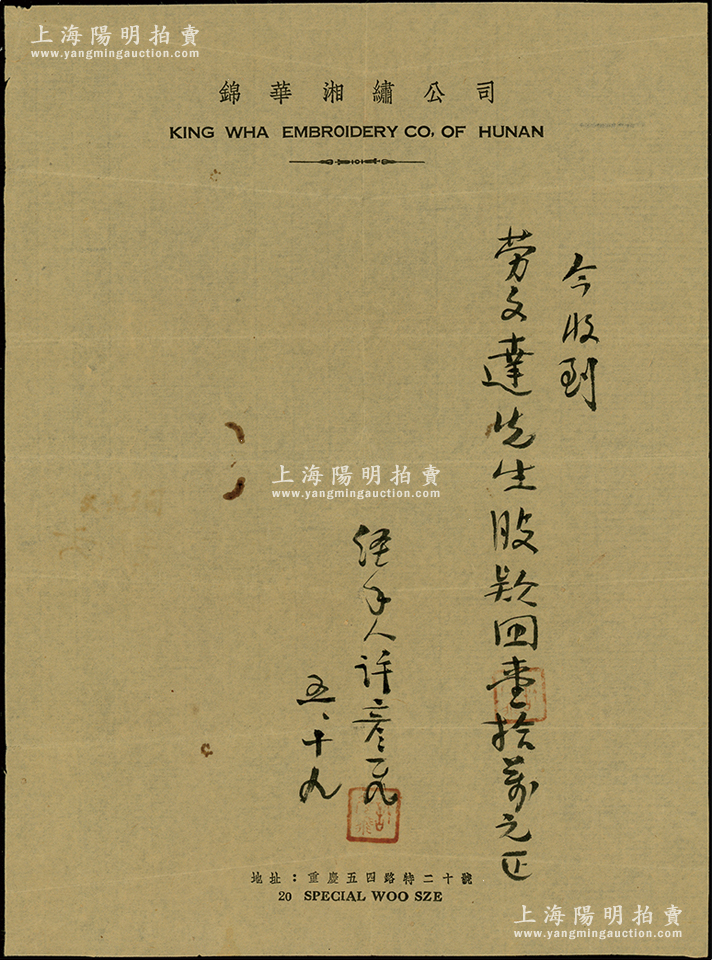 上海陽明拍賣
www.yangmingauction.com
錦華湘繡公司
KING WHA EMBROIDERY CO. OF HUNAN
今收到
勞文達先生股款國壹拾萬元正
上海陽明拍賣
www.yangmingauction.com
経手人許彥飛
五、十九
地址：重慶五四路特二十號
20 SPECIAL WOO SZE
上海陽明拍賣
www.yangmingauction.com